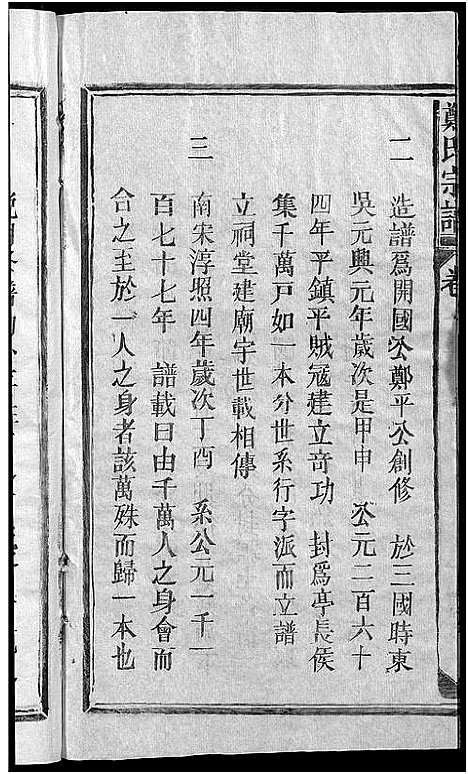 鄭氏宗譜 卷
二 造譜爲開國公鄭平公創修 於三國時東
吳元興元年歲次是甲申 公元二百六十
四年平鎮平賊冦建立奇功 封爲亭長侯
集千萬戸如一本分世系行字派而立譜
立祠堂建廟宇世載相傳
三 南宋淳照四年歲次丁酉 系公元一千一
百七十七年 譜載曰由千萬人之身會而
合之至於一人之身者該萬殊而歸一本也